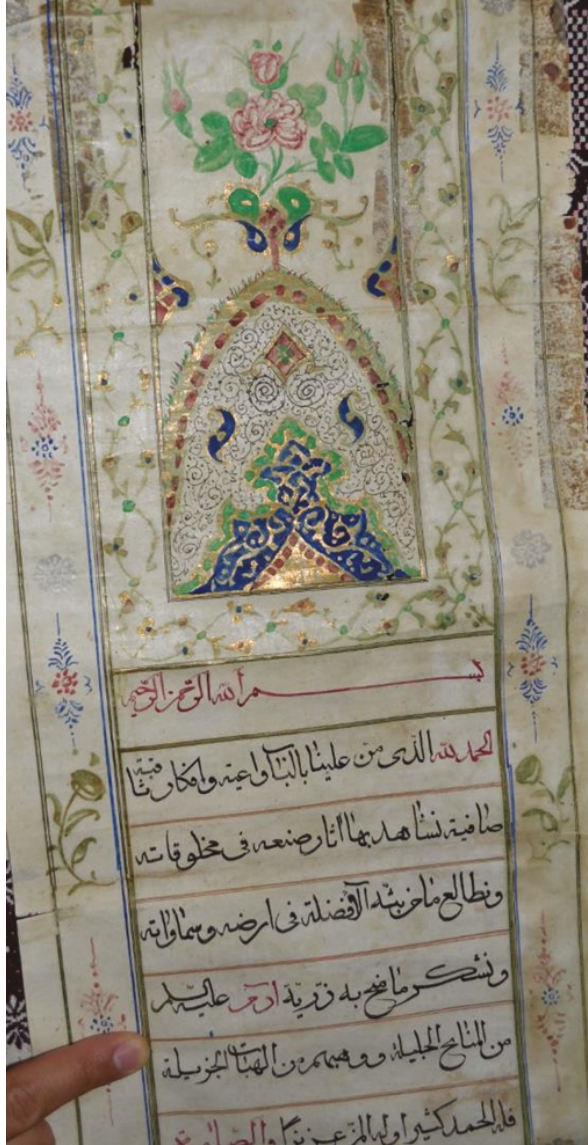 بسم الله الرحمن الرحيم
الحمد لله الذى من علينا بالباب واعية وافكار ثاقبة
صافية نشاهد بها اثار صنعه فى مخلوقاته
ونطالع ماخر بثه الافضلة فى ارضه وسماواته
ونشكر مامنح به ذرية ادم عليه السلام
من المنايح الجليلة ووهبهم من الهبات الجزيلة
فله الحمد كثيرا